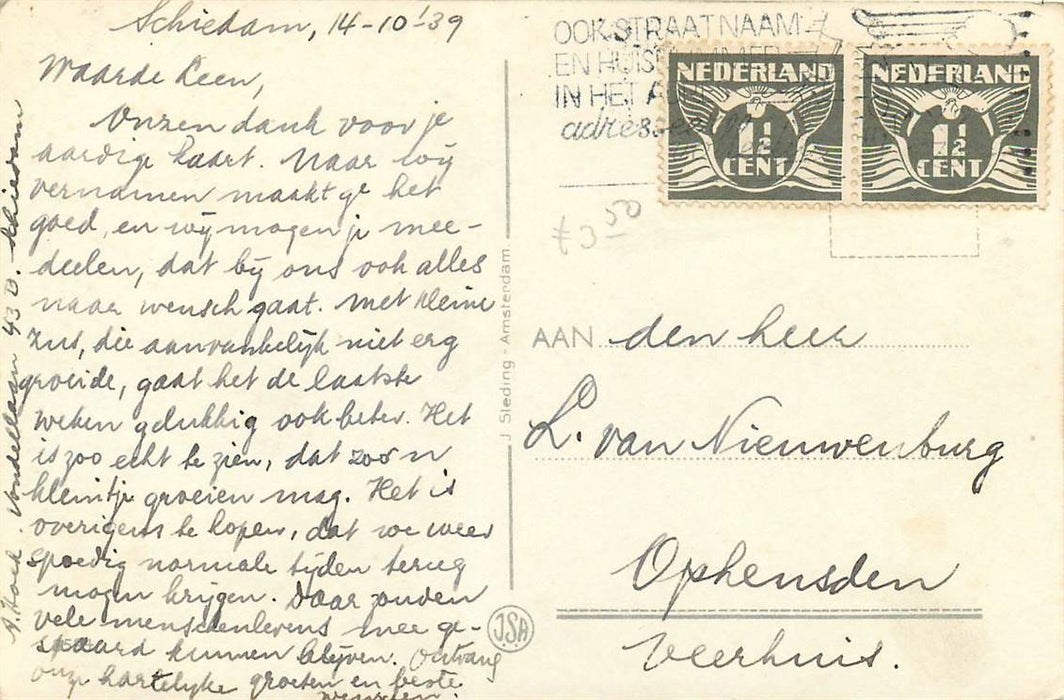 Schiedam, 14-10-'39
Waarde Leen,
Onzen dank voor je
aardige kaart. Naar wij
vernamen maakt ge het
goed, en wij mogen je mee-
deelen, dat bij ons ook alles
naar wensch gaat. Met kleine
zus, die aanvankelijk niet erg
groeide, gaat het de laatste
weken gelukkig ook beter. Het
is zoo echt te zien, dat zoo'n
kleintje groeien mag. Het is
overigens te hopen, dat we weer
spoedig normale tijden terug
mogen krijgen. Daar zouden
vele menschenlevens mee ge-
spaard kunnen blijven. Ontvang
onze hartelijke groeten en beste
wenschen.
Vondellaan 43 B. Schiedam
J Sleding - Amsterdam
JSA
OOK STRAATNAAM
EN HUISNUMMER
IN HET
NEDERLAND
1½
CENT
NEDERLAND
1½
CENT
f 3 50
AAN den heer
L. van Nieuwenburg
Ophensden
Veerhuis.